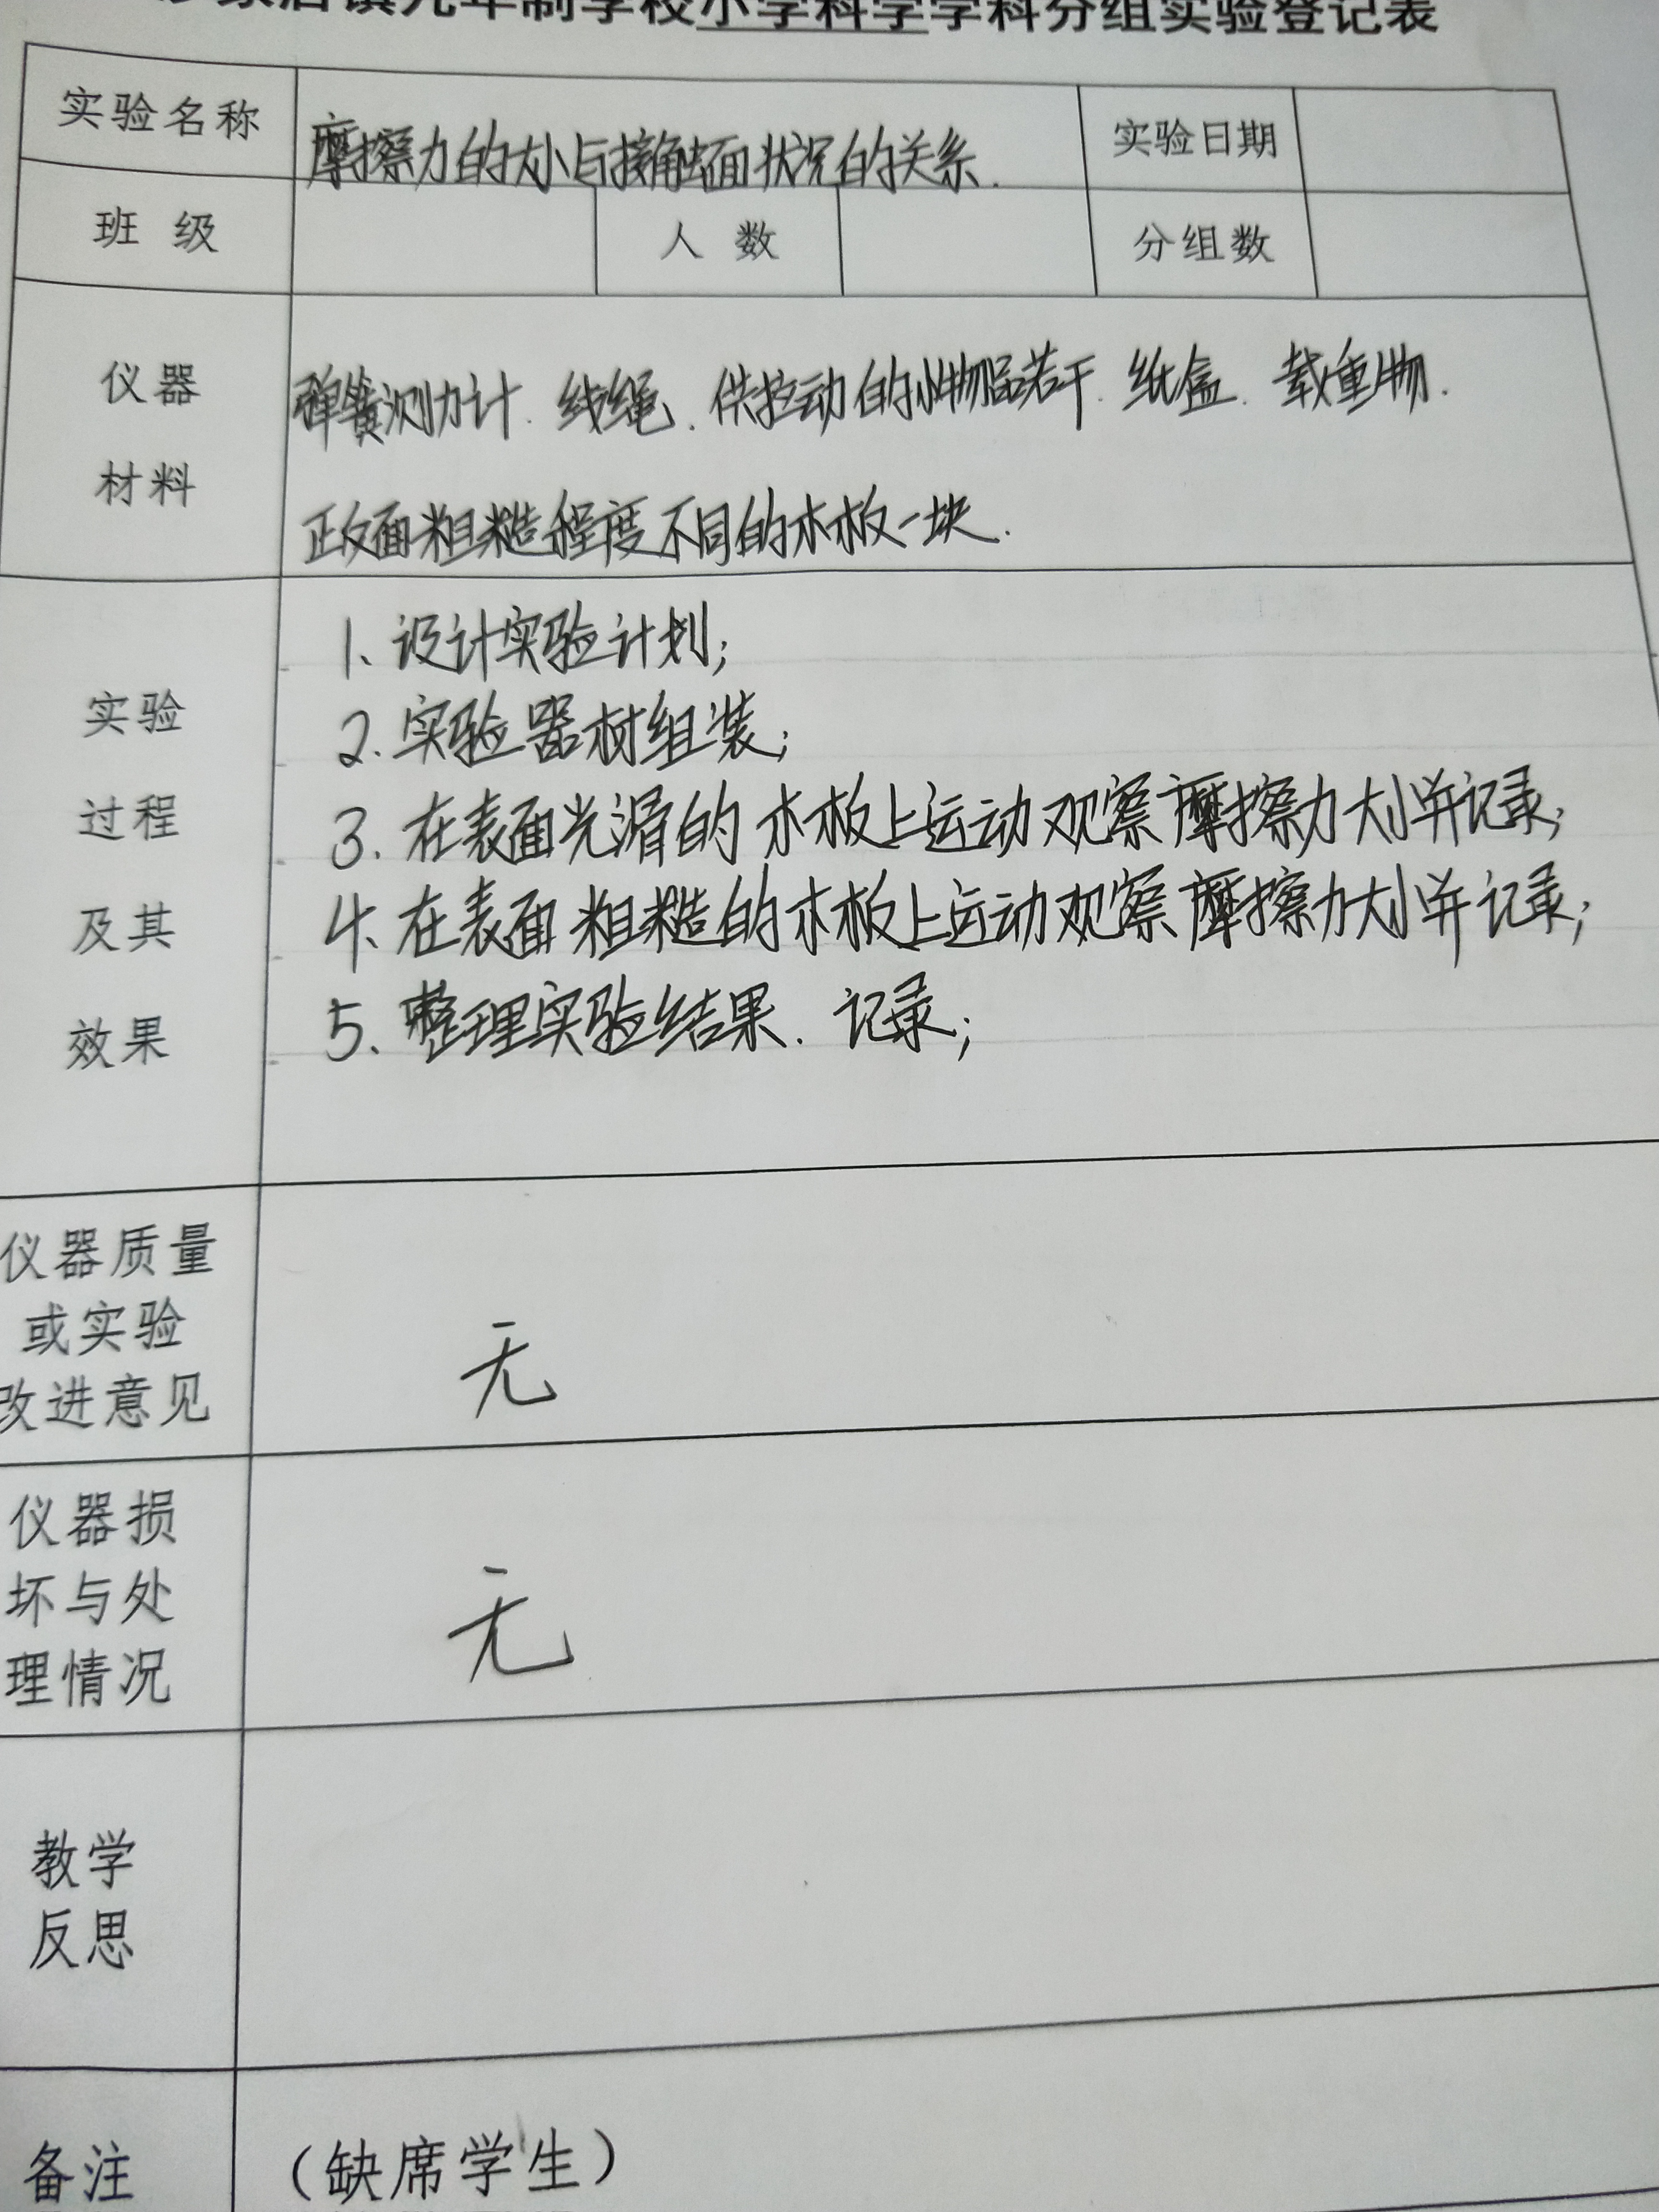 家店镇九年制学校小学科学学科分组实验登记表
实验名称 摩擦力的大小与接触面状况的关系. 实验日期
班 级 人 数 分组数
仪器
材料
弹簧测力计. 线绳、供拉动的小物品若干. 纸盒. 载重物.
正反面粗糙程度不同的木板一块.
实验
过程
及其
效果
1、设计实验计划;
2. 实验器材组装;
3. 在表面光滑的木板上运动观察摩擦力大小并记录;
4、在表面粗糙的木板上运动观察摩擦力大小并记录;
5、整理实验结果. 记录;
仪器质量
或实验
改进意见
无
仪器损
坏与处
理情况
无
教学
反思
备注 (缺席学生)